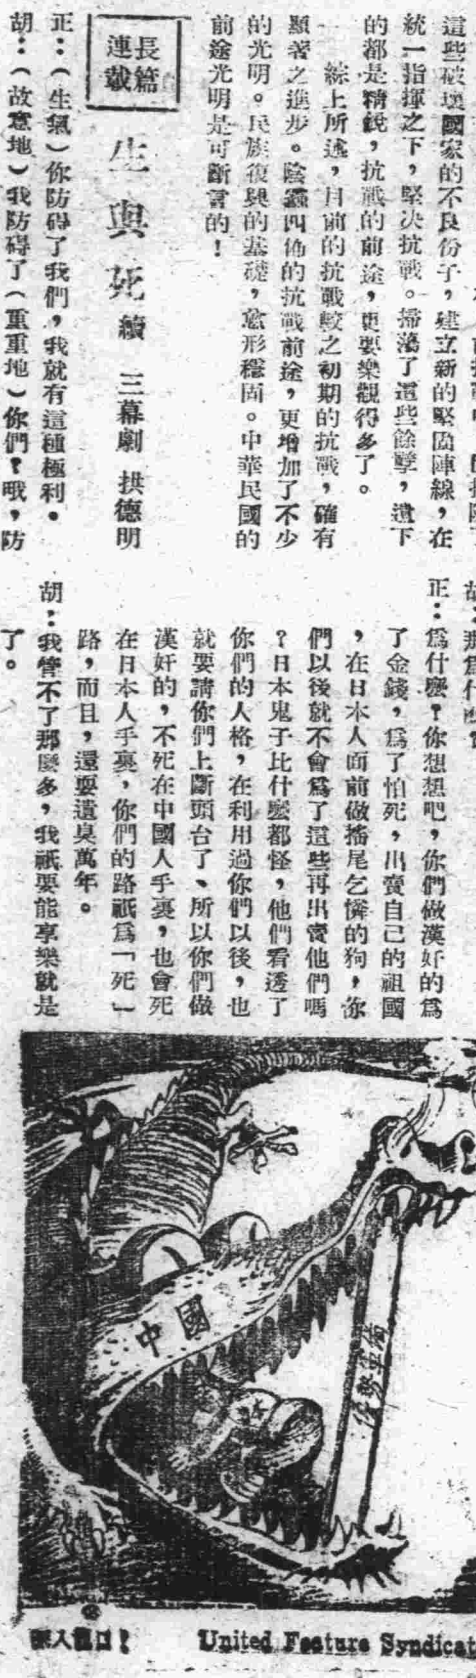 這些破壞國家的不良份子，建立新的堅固陣線，在
統一指揮之下，堅决抗戰。掃蕩了這些餘孽，遺下
的都是精銳，抗戰的前途，更要樂觀得多了。
綜上所述，目前的抗戰較之初期的抗戰，確有
顯著之進步。陰霾四佈的抗戰前途，更增加了不少
的光明。民族復興的基礎，愈形穩固。中華民國的
前途光明是可斷言的！
長篇
連載
生與死 續 三幕劇 拱德明
正：（生氣）你防碍了我們，我就有這種極利。
胡：（故意地）我防碍了（重重地）你們？哦，防
正：爲什麽？你想想吧，你們做漢奸的爲
了金錢，爲了怕死，出賣自己的祖國
，在日本人面前做搖尾乞憐的狗，你
們以後就不會爲了這些再出賣他們嗎
？日本鬼子比什麽都怪，他們看透了
你們的人格，在利用過你們以後，也
就要請你們上斷頭台了、所以你們做
漢奸的，不死在中國人手裏，也會死
在日本人手裏，你們的路祇爲「死」
路，而且，還要遺臭萬年。
胡：我管不了那麽多，我祇要能享樂就是
了。
中國
United Feature Syndicat